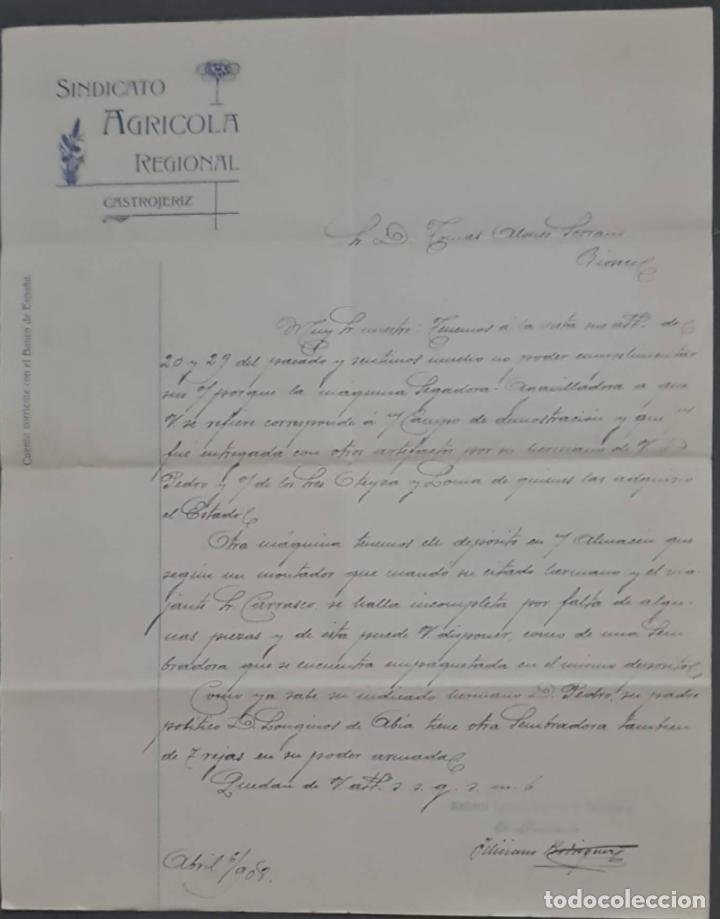 SINDICATO
AGRICOLA
REGIONAL
CASTROJERIZ
Cuenta corriente con el Banco de España.
Sr. D. Tomas Alonso Serrano
Rioseco
Muy Sr. nuestro: Tenemos á la vista sus att.
20 y 29 del pasado y sentimos mucho no poder cumplimentar
sus porque la máquina Segadora-Agavilladora a que
V se refiere corresponde á Campo de demostración y que
fué entregada con otros artefactos por su hermano de V D.
Pedro y de los Sres Oteyza y Loma de quienes las adquirio
el Estado
Otra máquina tenemos de depósito en Almacén que
según un montador que mandó su citado hermano y el via-
jante Sr. Carrasco, se halla incompleta por falta de algu-
nas piezas y de esta puede V disponer, como de una Sem-
bradora que se encuentra empaquetada en el mismo deposito
Como ya sabe su indicado hermano D. Pedro, su padre
politico D. Longinos de Abia tiene otra Sembradora tambien
de 7 rejas en su poder armada
Quedan de V att. s. s. q. s. m. b
Abril 6/909
Rodriguez
todocoleccion
todocoleccion.net